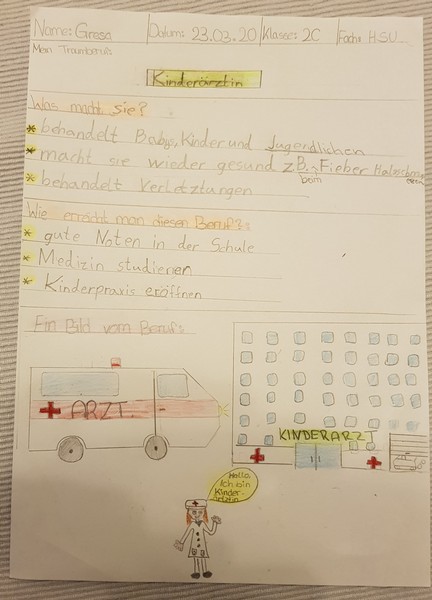 Name: Gresa Datum: 23.03.20 Klasse: 2C Fach: HSU
Mein Traumberufs
Kinderärztin
Was macht sie?
* behandelt Babys, Kinder und Jugendlichen
* macht sie wieder gesund z B. Fieber Halsschmerzen
beim
* behandelt Verletztungen
Wie erreicht man diesen Beruf?
* gute Noten in der Schule
* Medizin studieren
* Kinderpraxis eröffnen
Ein Bild vom Berufs
ARZT
KINDERARZT
Hallo,
Ich bin
Kinder-
ärztin